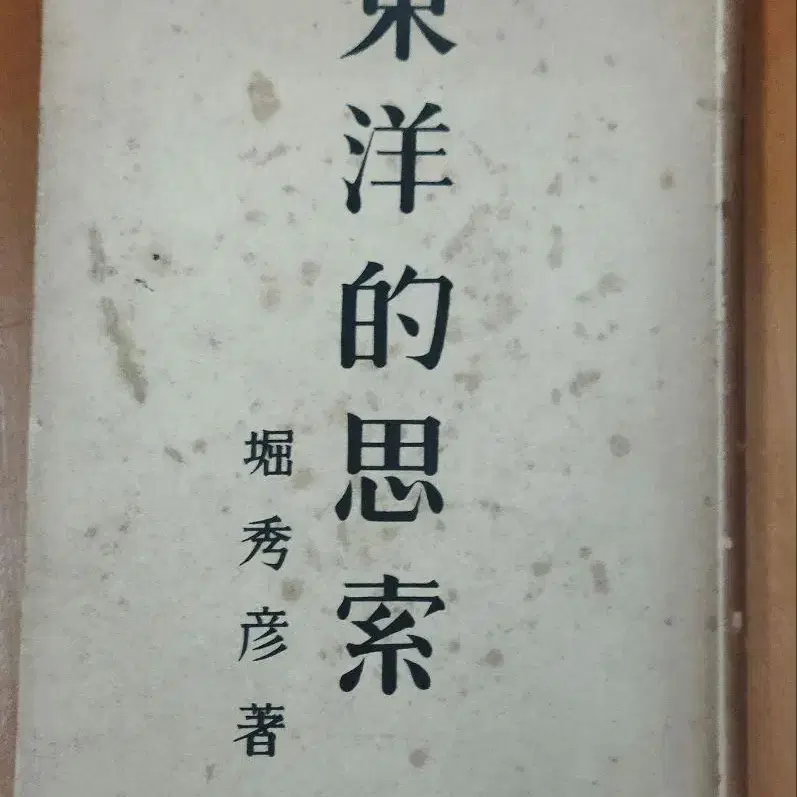 東洋的思索
堀秀彦著